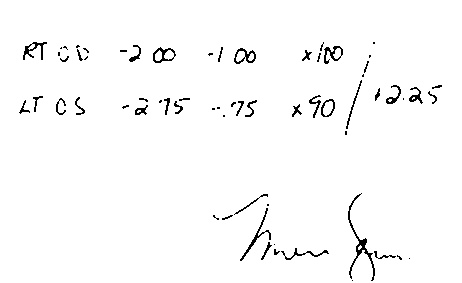 RT OD -2 00 -1 00 x100
LT OS -2 75 -.75 x90 / +2.25